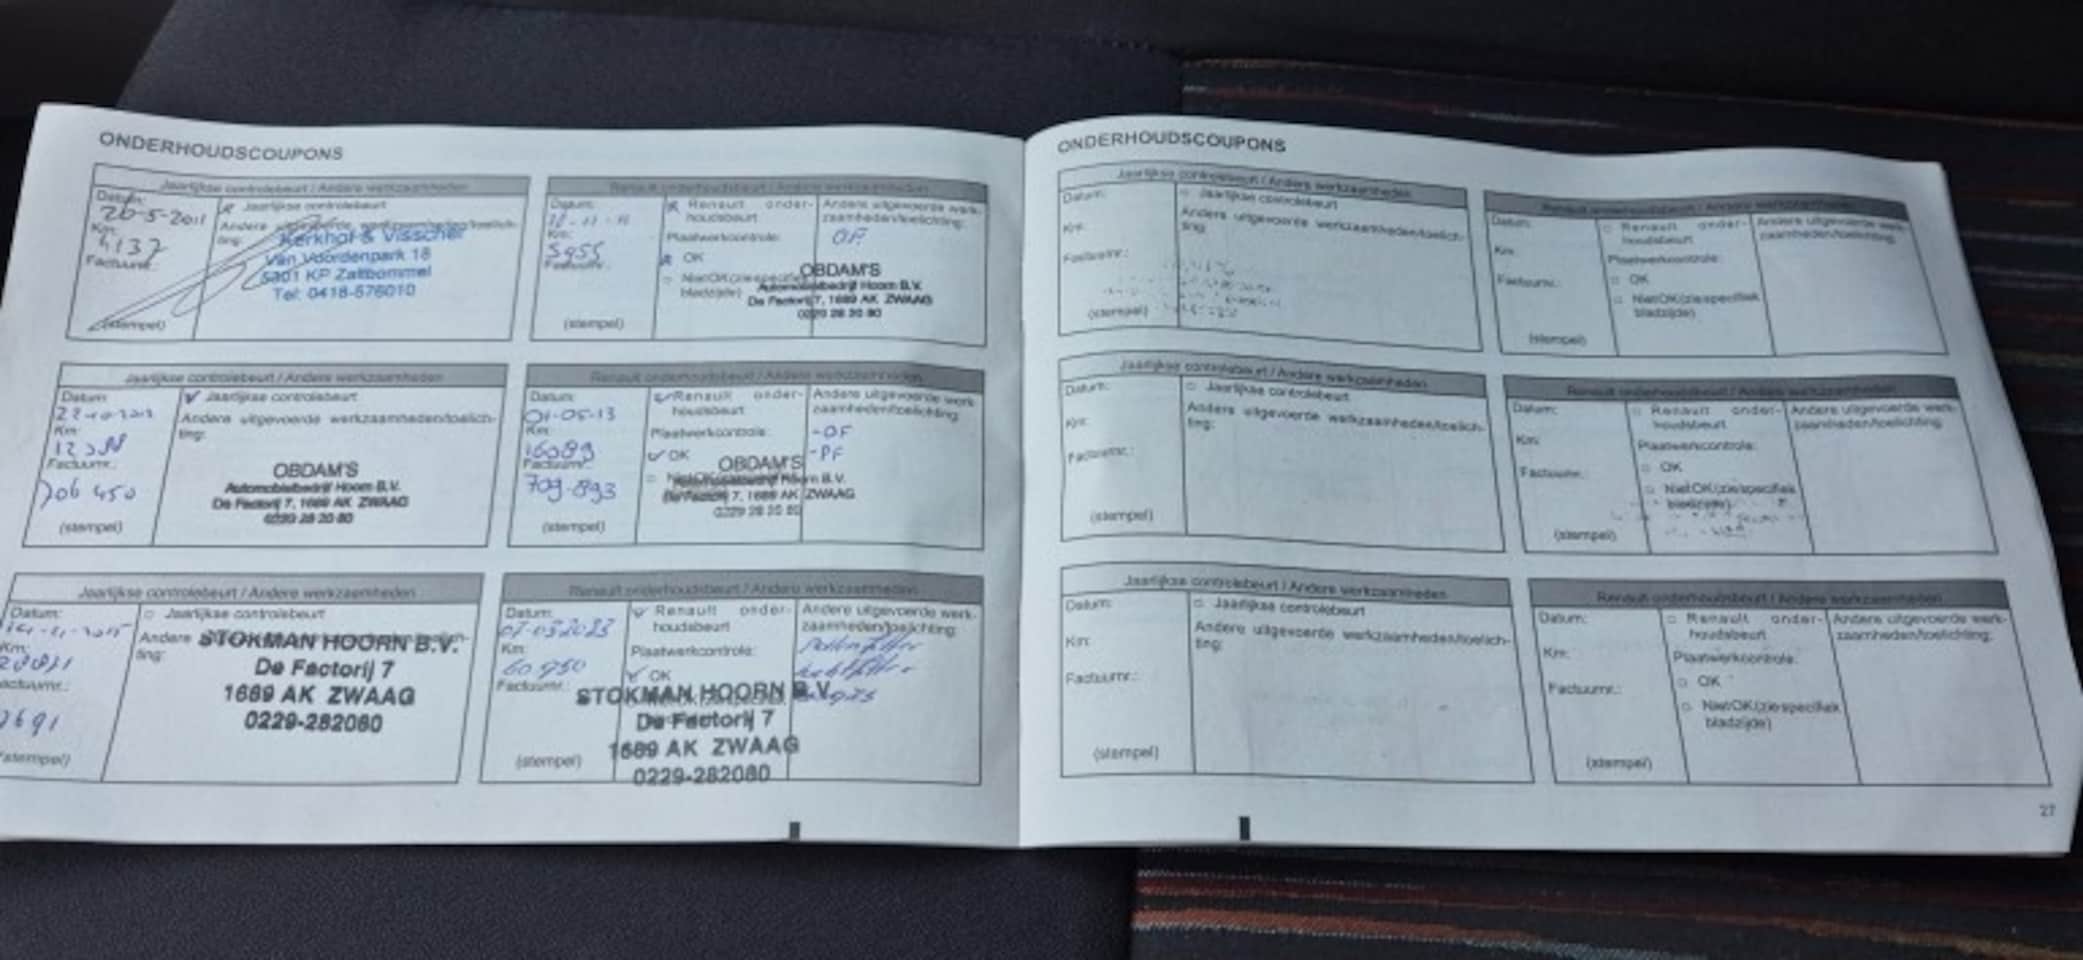 ONDERHOUDSCOUPONS
Jaarlijkse controlebeurt / Andere werkzaamheden
Datum:
26-5-2011
Km:
4137
Factuurnr.:
(stempel)
Jaarlijkse controlebeurt
Andere uitgevoerde werkzaamheden/toelich-
ting:
Kerkhof & Visscher
Van Voordenpark 18
5301 KP Zaltbommel
Tel: 0418-576010
Renault onderhoudsbeurt / Andere werkzaamheden
Datum:
Km:
5955
Factuurnr.:
(stempel)
Renault onder-
houdsbeurt
Plaatwerkcontrole:
OK
Niet OK (zie specifiek
bladzijde)
Andere uitgevoerde werk-
zaamheden/toelichting:
OF
OBDAM'S
Automobielbedrijf Hoorn B.V.
De Factorij 7, 1689 AK ZWAAG
0229 28 20 80
Jaarlijkse controlebeurt / Andere werkzaamheden
Datum:
Km:
Factuurnr.:
706 450
(stempel)
Jaarlijkse controlebeurt
Andere uitgevoerde werkzaamheden/toelich-
ting:
OBDAM'S
Automobielbedrijf Hoorn B.V.
De Factorij 7, 1689 AK ZWAAG
0229 28 20 80
Renault onderhoudsbeurt / Andere werkzaamheden
Datum:
01-05-13
Km:
16089
Factuurnr.:
709-893
(stempel)
Renault onder-
houdsbeurt
Plaatwerkcontrole:
OK
Andere uitgevoerde werk-
zaamheden/toelichting:
-OF
-PF
OBDAM'S
Automobielbedrijf Hoorn B.V.
De Factorij 7, 1689 AK ZWAAG
0229 28 20 80
Jaarlijkse controlebeurt / Andere werkzaamheden
Datum:
Km:
Factuurnr.:
(stempel)
Jaarlijkse controlebeurt
Andere
ting:
STOKMAN HOORN B.V.
De Factorij 7
1689 AK ZWAAG
0229-282080
Renault onderhoudsbeurt / Andere werkzaamheden
Datum:
07-03-2023
Km:
60950
Factuurnr.:
(stempel)
Renault onder-
houdsbeurt
Plaatwerkcontrole:
OK
Andere uitgevoerde werk-
zaamheden/toelichting:
STOKMAN HOORN B.V.
De Factorij 7
1689 AK ZWAAG
0229-282080
ONDERHOUDSCOUPONS
Jaarlijkse controlebeurt / Andere werkzaamheden
Datum:
Km:
Factuurnr.:
(stempel)
Jaarlijkse controlebeurt
Andere uitgevoerde werkzaamheden/toelich-
ting:
Renault onderhoudsbeurt / Andere werkzaamheden
Datum:
Km:
Factuurnr.:
(stempel)
Renault onder-
houdsbeurt
Plaatwerkcontrole:
OK
Niet OK (zie specifiek
bladzijde)
Andere uitgevoerde werk-
zaamheden/toelichting:
Jaarlijkse controlebeurt / Andere werkzaamheden
Datum:
Km:
Factuurnr.:
(stempel)
Jaarlijkse controlebeurt
Andere uitgevoerde werkzaamheden/toelich-
ting:
Renault onderhoudsbeurt / Andere werkzaamheden
Datum:
Km:
Factuurnr.:
(stempel)
Renault onder-
houdsbeurt
Plaatwerkcontrole:
OK
Niet OK (zie specifiek
bladzijde)
Andere uitgevoerde werk-
zaamheden/toelichting:
Jaarlijkse controlebeurt / Andere werkzaamheden
Datum:
Km:
Factuurnr.:
(stempel)
Jaarlijkse controlebeurt
Andere uitgevoerde werkzaamheden/toelich-
ting:
Renault onderhoudsbeurt / Andere werkzaamheden
Datum:
Km:
Factuurnr.:
(stempel)
Renault onder-
houdsbeurt
Plaatwerkcontrole:
OK
Niet OK (zie specifiek
bladzijde)
Andere uitgevoerde werk-
zaamheden/toelichting:
27